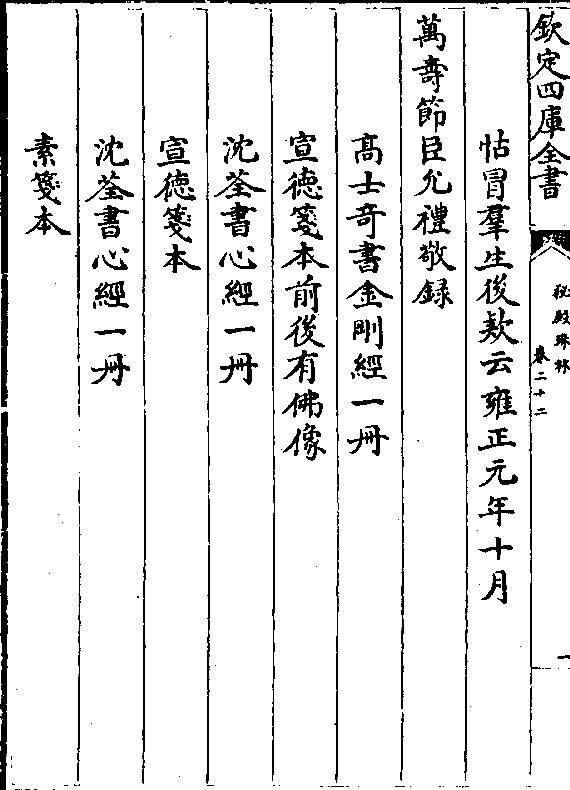 欽定四庫全書
秘殿珠林
卷二十二
一
怙冒羣生後款云雍正元年十月
萬壽節臣允禮敬録
髙士竒書金剛經一冊
宣徳箋本前後有佛像
沈荃書心經一冊
宣徳箋本
沈荃書心經一冊
素箋本